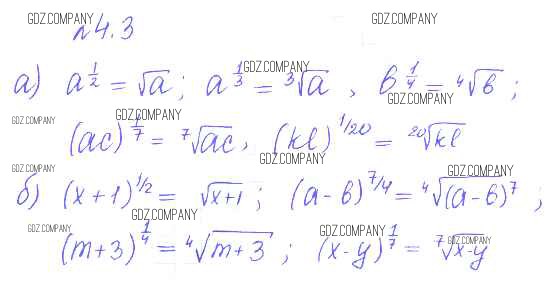 GDZ.COMPANY GDZ.COMPANY
№4.3
GDZ.COMPANY
а) a^{1/2} = √a; a^{1/3} = ³√a, b^{1/4} = ⁴√b;
GDZ.COMPANY
GDZ.COMPANY GDZ.COMPANY
(ac)^{1/7} = ⁷√ac, (kl)^{1/20} = ²⁰√kl
GDZ.COMPANY
GDZ.COMPANY GDZ.COMPANY
б) (x+1)^{1/2} = √x+1; (a-b)^{7/4} = ⁴√(a-b)⁷;
GDZ.COMPANY
GDZ.COMPANY GDZ.COMPANY GDZ.COMPANY
(m+3)^{1/4} = ⁴√m+3; (x-y)^{1/7} = ⁷√x-y